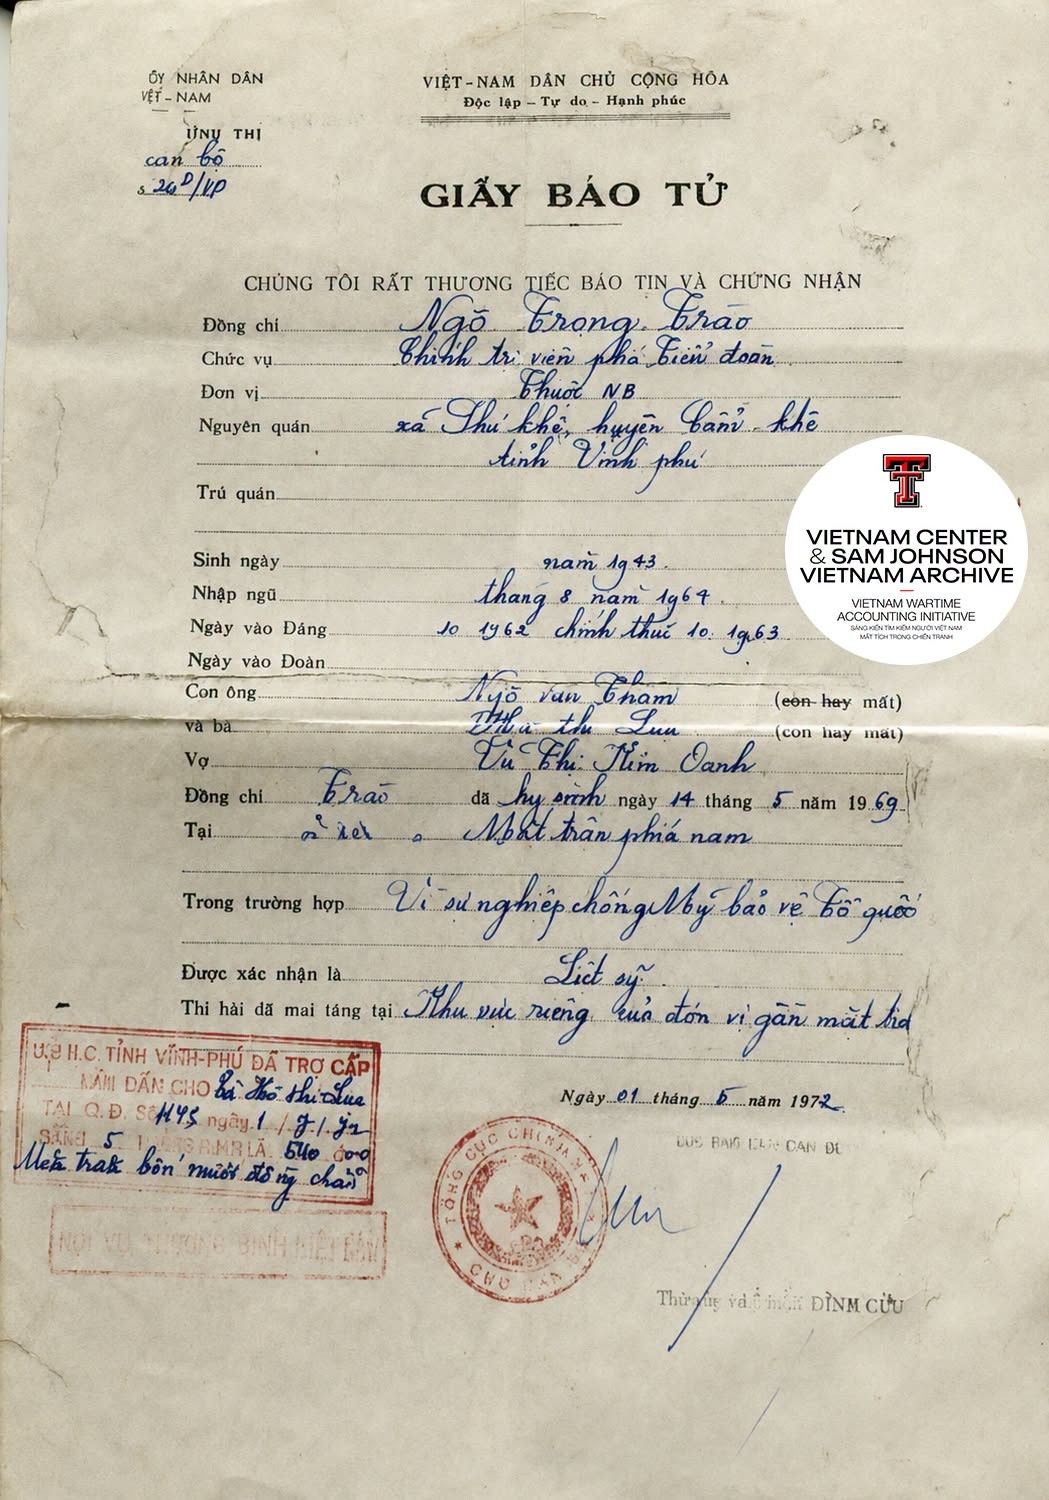 ỦY NHÂN DÂN
VIỆT-NAM
VIỆT-NAM DÂN CHỦ CỘNG HÒA
Độc lập - Tự do - Hạnh phúc
cán bộ
GIẤY BÁO TỬ
CHÚNG TÔI RẤT THƯƠNG TIẾC BÁO TIN VÀ CHỨNG NHẬN
Đồng chí Ngô Trọng Trão
Chức vụ Chính trị viên phó Tiểu đoàn
Đơn vị Thuộc NB
Nguyên quán xã Thú khê, huyện Cẩm-khê
tỉnh Vĩnh phú
Trú quán
Sinh ngày năm 1943.
Nhập ngũ tháng 8 năm 1964.
Ngày vào Đảng 10 1962 chính thức 10. 1963
Ngày vào Đoàn
Con ông Ngô văn Tham (còn hay mất)
và bà thị Lưu (còn hay mất)
Vợ Vũ Thị Kim Oanh
Đồng chí Trão đã hy sinh ngày 14 tháng 5 năm 1969
Tại Mặt trận phiá nam
Trong trường hợp Vì sự nghiệp chống Mỹ bảo vệ Tổ quốc
Được xác nhận là Liệt sỹ.
Thi hài đã mai táng tại Khu vực riêng của đơn vị gần mặt trậ
U.B.H.C. TỈNH VĨNH-PHÚ ĐÃ TRỢ CẤP
DẤN CHO bà thị Lưu
TẠI Q.Đ. SỐ ngày 1
LÀ 540
bốn mươi đồng chẵn
Ngày 01 tháng 5 năm 1972
TỔNG CỤC CHÍNH
ĐÌNH CỪU
VIETNAM CENTER
& SAM JOHNSON
VIETNAM ARCHIVE
VIETNAM WARTIME
ACCOUNTING INITIATIVE
SÁNG KIẾN TÌM KIẾM NGƯỜI VIỆT NAM
MẤT TÍCH TRONG CHIẾN TRANH